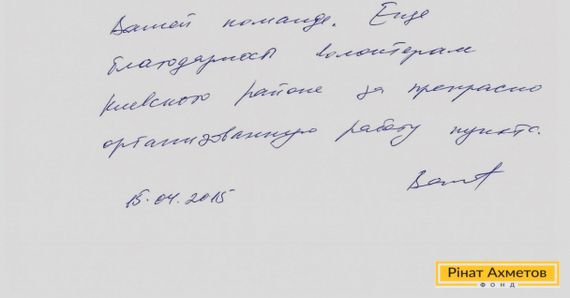 Вашей команде. Еще
благодарность волонтерам
Киевского района за прекрасно
организованную работу пункта.
15.04.2015
Рінат Ахметов
ФОНД